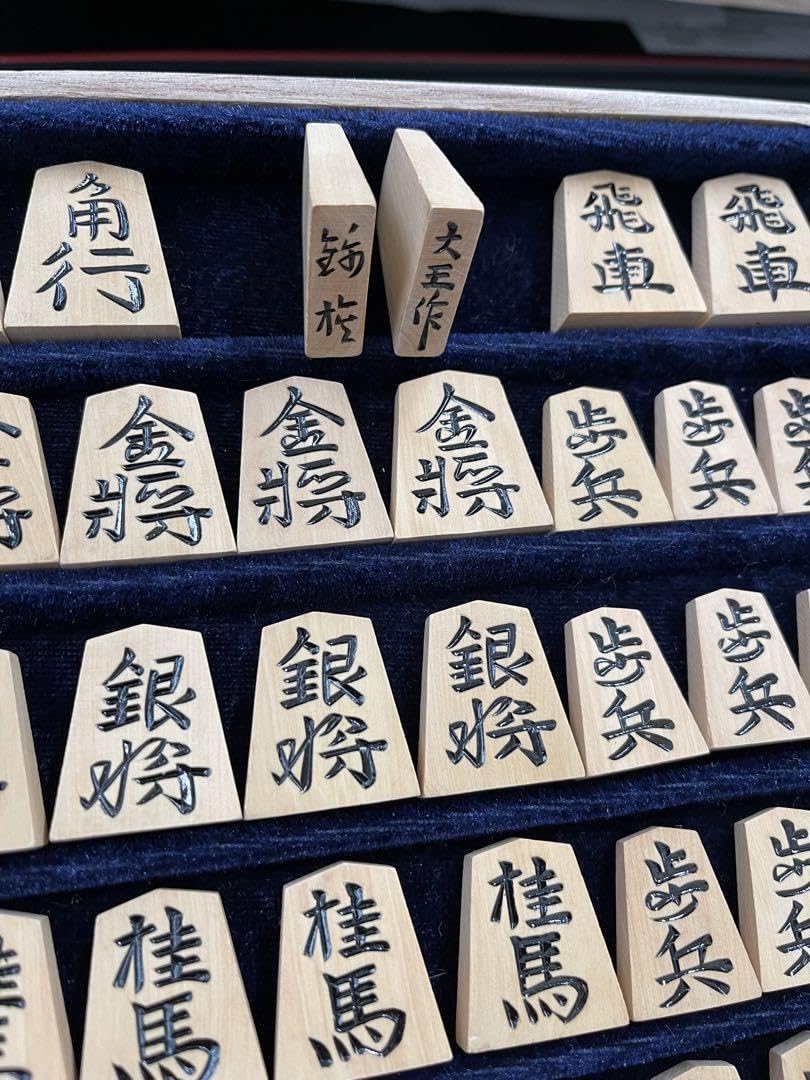 角行
大王作
飛車
飛車
金將
金將
金將
歩兵
歩兵
銀将
銀将
銀将
歩兵
歩兵
桂馬
桂馬
桂馬
歩兵